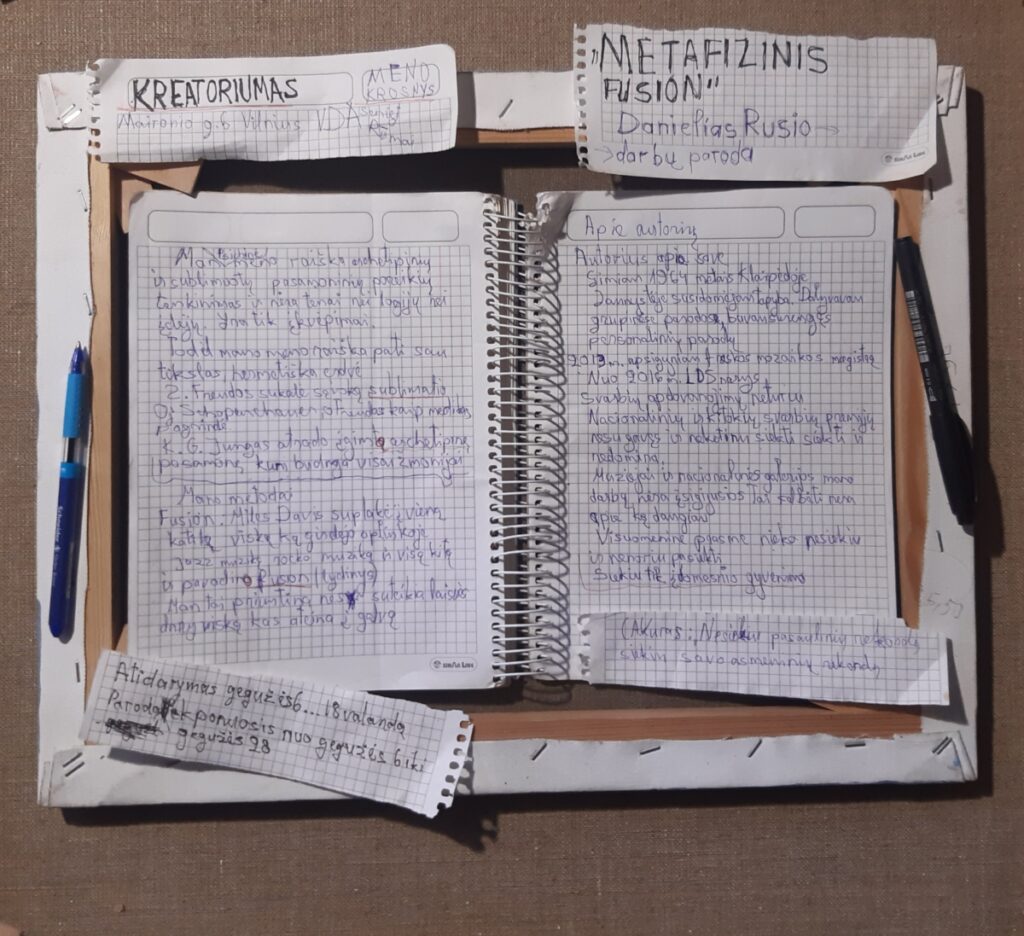 KREATORIUMAS
MENO
KROSNYS
Maironio g. 6 Vilnius VDA
„METAFIZINIS
FUSION"
Danielias Rusio →
→ darbų paroda
Mano meno raiška archetipinių
ir sublimuotų pasąmoninių
ir nėra tenai nei logijų nei
idėjų. Yra tik įkvėpimai.
Todėl mano meno raiška pati sau
tekstas hermetiška erdvė
Z. Freudas sukūrė sąvoką sublimatio
O
K. G. Jungas atrado įgimtą archetipinę
pasąmonę kuri būdinga visai žmonijai
Mano metodai
Fusion. Miles Davis suplakė į vieną
viską ką girdėjo aplinkoje
Jazz muziką rocko muziką ir visą kitą
ir pavadino fusion (lydinys)
Man tai priimtina nes suteikia laisvės
daryt viską kas ateina į galvą
Apie autorių
Autorius apie save
Gimiau 1964 metais Klaipėdoje
Jaunystėje susidomėjau tapyba. Dalyvavau
grupinėse parodose, buvau surengęs
personalinių parodų
freskos mozaikos magistrą
Nuo 2016 m. LDS narys
Svarbių apdovanojimų neturiu
Nacionalinių ir kitokių svarbių premijų
nesu gavęs ir neketinu siekti ir
nedomina.
Muziejai ir nacionalinės galerijos mano
darbų nėra įsigijusios tai kalbėti nėra
apie ką daugiau
Visuomenine prasme nieko nesiekiu
ir nenoriu pasiekti
Siekiu tik įdomesnio gyvenimo
(Akuras: Nesiekiu pasaulinių rekordų
siekiu savo asmeninių rekordų
Atidarymas gegužės 6... 18 valandą
Paroda eksponuosis nuo gegužės 6 iki
gegužės 28